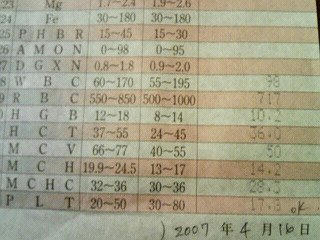 23 Mg 1.7~2.4 1.9~2.6
24 Fe 30~180 30~180
25 P H B R 15~45 15~30
26 A M O N 0~98 0~95
27 D G X N 0.8~1.8 0.9~2.0
8 W B C 60~170 55~195 98
9 R B C 550~850 500~1000 717
0 H G B 12~18 8~14 10.2
H C T 37~55 24~45 36.0
M C V 66~77 40~55 50
M C H 19.9~24.5 13~17 14.2
M C H C 32~36 30~36 28.3
P L T 20~50 30~80 17.3 OK
) 2007 年 4 月 16 日